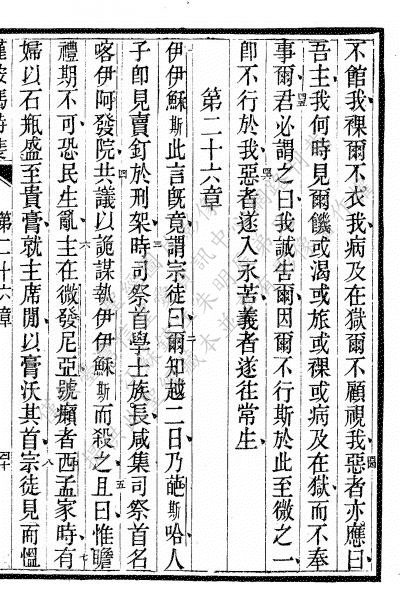 不館我、裸爾不衣我、病及在獄爾不顧視我、惡者亦應曰
吾主我何時見爾饑或渴或旅或裸或病及在獄而不奉
事爾君必謂之曰我誠告爾因爾不行斯於此至微之一
卽不行於我惡者遂入永苦義者遂往常生
第二十六章
伊伊穌斯此言旣竟謂宗徒曰爾知越二日乃葩斯哈人
子卽見賣釘於刑架時司祭首學士族長咸集司祭首名
喀伊阿發院共議以詭謀執伊伊穌斯而殺之且曰惟瞻
禮期不可恐民生亂主在微發尼亞號癩者西孟家時有
婦以石瓶盛至貴膏就主席間以膏沃其首宗徒見而慍
第二十六章